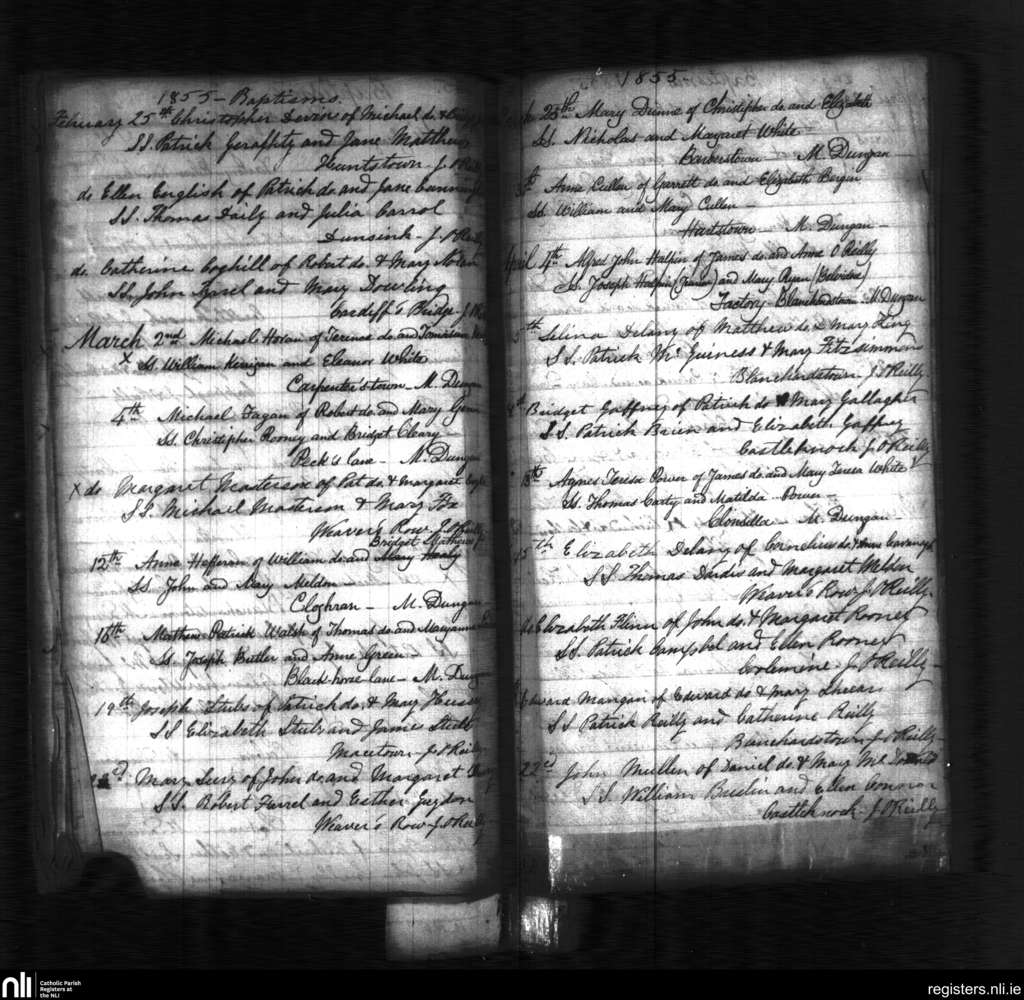 1855 - Baptisms.
February 25th Christopher Deven of Michael do &
SS. Patrick Geraghty and Jane Matthews
Huntstown J. O'Reilly
do Ellen English of Patrick do and Jane
SS. Thomas Daily and Julia Carrol
Dunsink - J. O'Reilly
do. Catherine Coghill of Robert do. & Mary Nolan
SS. John and Mary Dowling
Cardiff's Bridge - J. O'R
March 2nd Michael Horan of do and
X SS. William Kerrigan and Eleanor White
Carpenterstown - M. Dungan
4th Michael Fagan of Robert do. and Mary
SS. Christopher Rooney and Bridget Cleary -
Peck's lane - M. Dungan
X do Margaret Masterson of Pat do. & Margaret
SS. Michael Masterson & Mary
Weaver's Row J. O'Reilly
Bridget Mathews
12th Anne Hefferon of William do. and Mary Healy
SS. John and Mary Meldon -
Cloghran - M. Dungan
16th Matthew Patrick Walsh of Thomas do. and Maryanne
SS. Joseph Butler and Anne Green -
Black-horse lane - M. Dung
19th Joseph Stubs of Patrick do. & Mary
SS Elizabeth Stubs and James Stubs
Macetown - J. O'Reilly
22d Mary of John do. and Margaret
SS. Robert Farrel and Esther
Weaver's Row J. O'Reilly
1855
25th Mary Dunne of Christopher do and Elizabeth
SS. Nicholas and Margaret White -
Barberstown - M. Dungan
th Anne Cullen of Garrett do. and Elizabeth Bergin
SS. William and Mary Cullen -
Hartstown - M. Dungan -
April 4th Alfred John Halpin of James do. and Anne O'Reilly
SS. Joseph Halpin and Mary Ryan (Belvidere)
Factory Blanchardstown - M. Dungan
5th Selina Delany of Matthew do & Mary King
SS. Patrick McGuiness & Mary Fitzsimmon
Blanchardstown J. O'Reilly
Bridget Gaffney of Patrick do & Mary Gallagher
SS. Patrick Brien and Elizabeth Gaffney
Castleknock J. O'Reilly
13th Agnes Teresa Power of James do. and Mary Teresa White
SS. Thomas Carty and Matilda Power -
Clonsilla M. Dungan -
15th Elizabeth Delany of Cornelius do. & Anne Cavanagh
SS Thomas Dardis and Margaret Meldon
Weaver's Row J. O'Reilly.
do Elizabeth Flinn of John do. & Margaret Rooney
SS. Patrick Campbel and Ellen Rooney
Corlemine - J. O'Reilly -
Edward Mangan of Edward do & Mary
SS Patrick Reilly and Catherine Reilly
Blanchardstown J. O'Reilly -
22d John Mullen of Daniel do & Mary
SS. William Bustin and Ellen Connor
Castleknock - J. O'Reilly
nli
Catholic Parish
Registers at
the NLI
registers.nli.ie